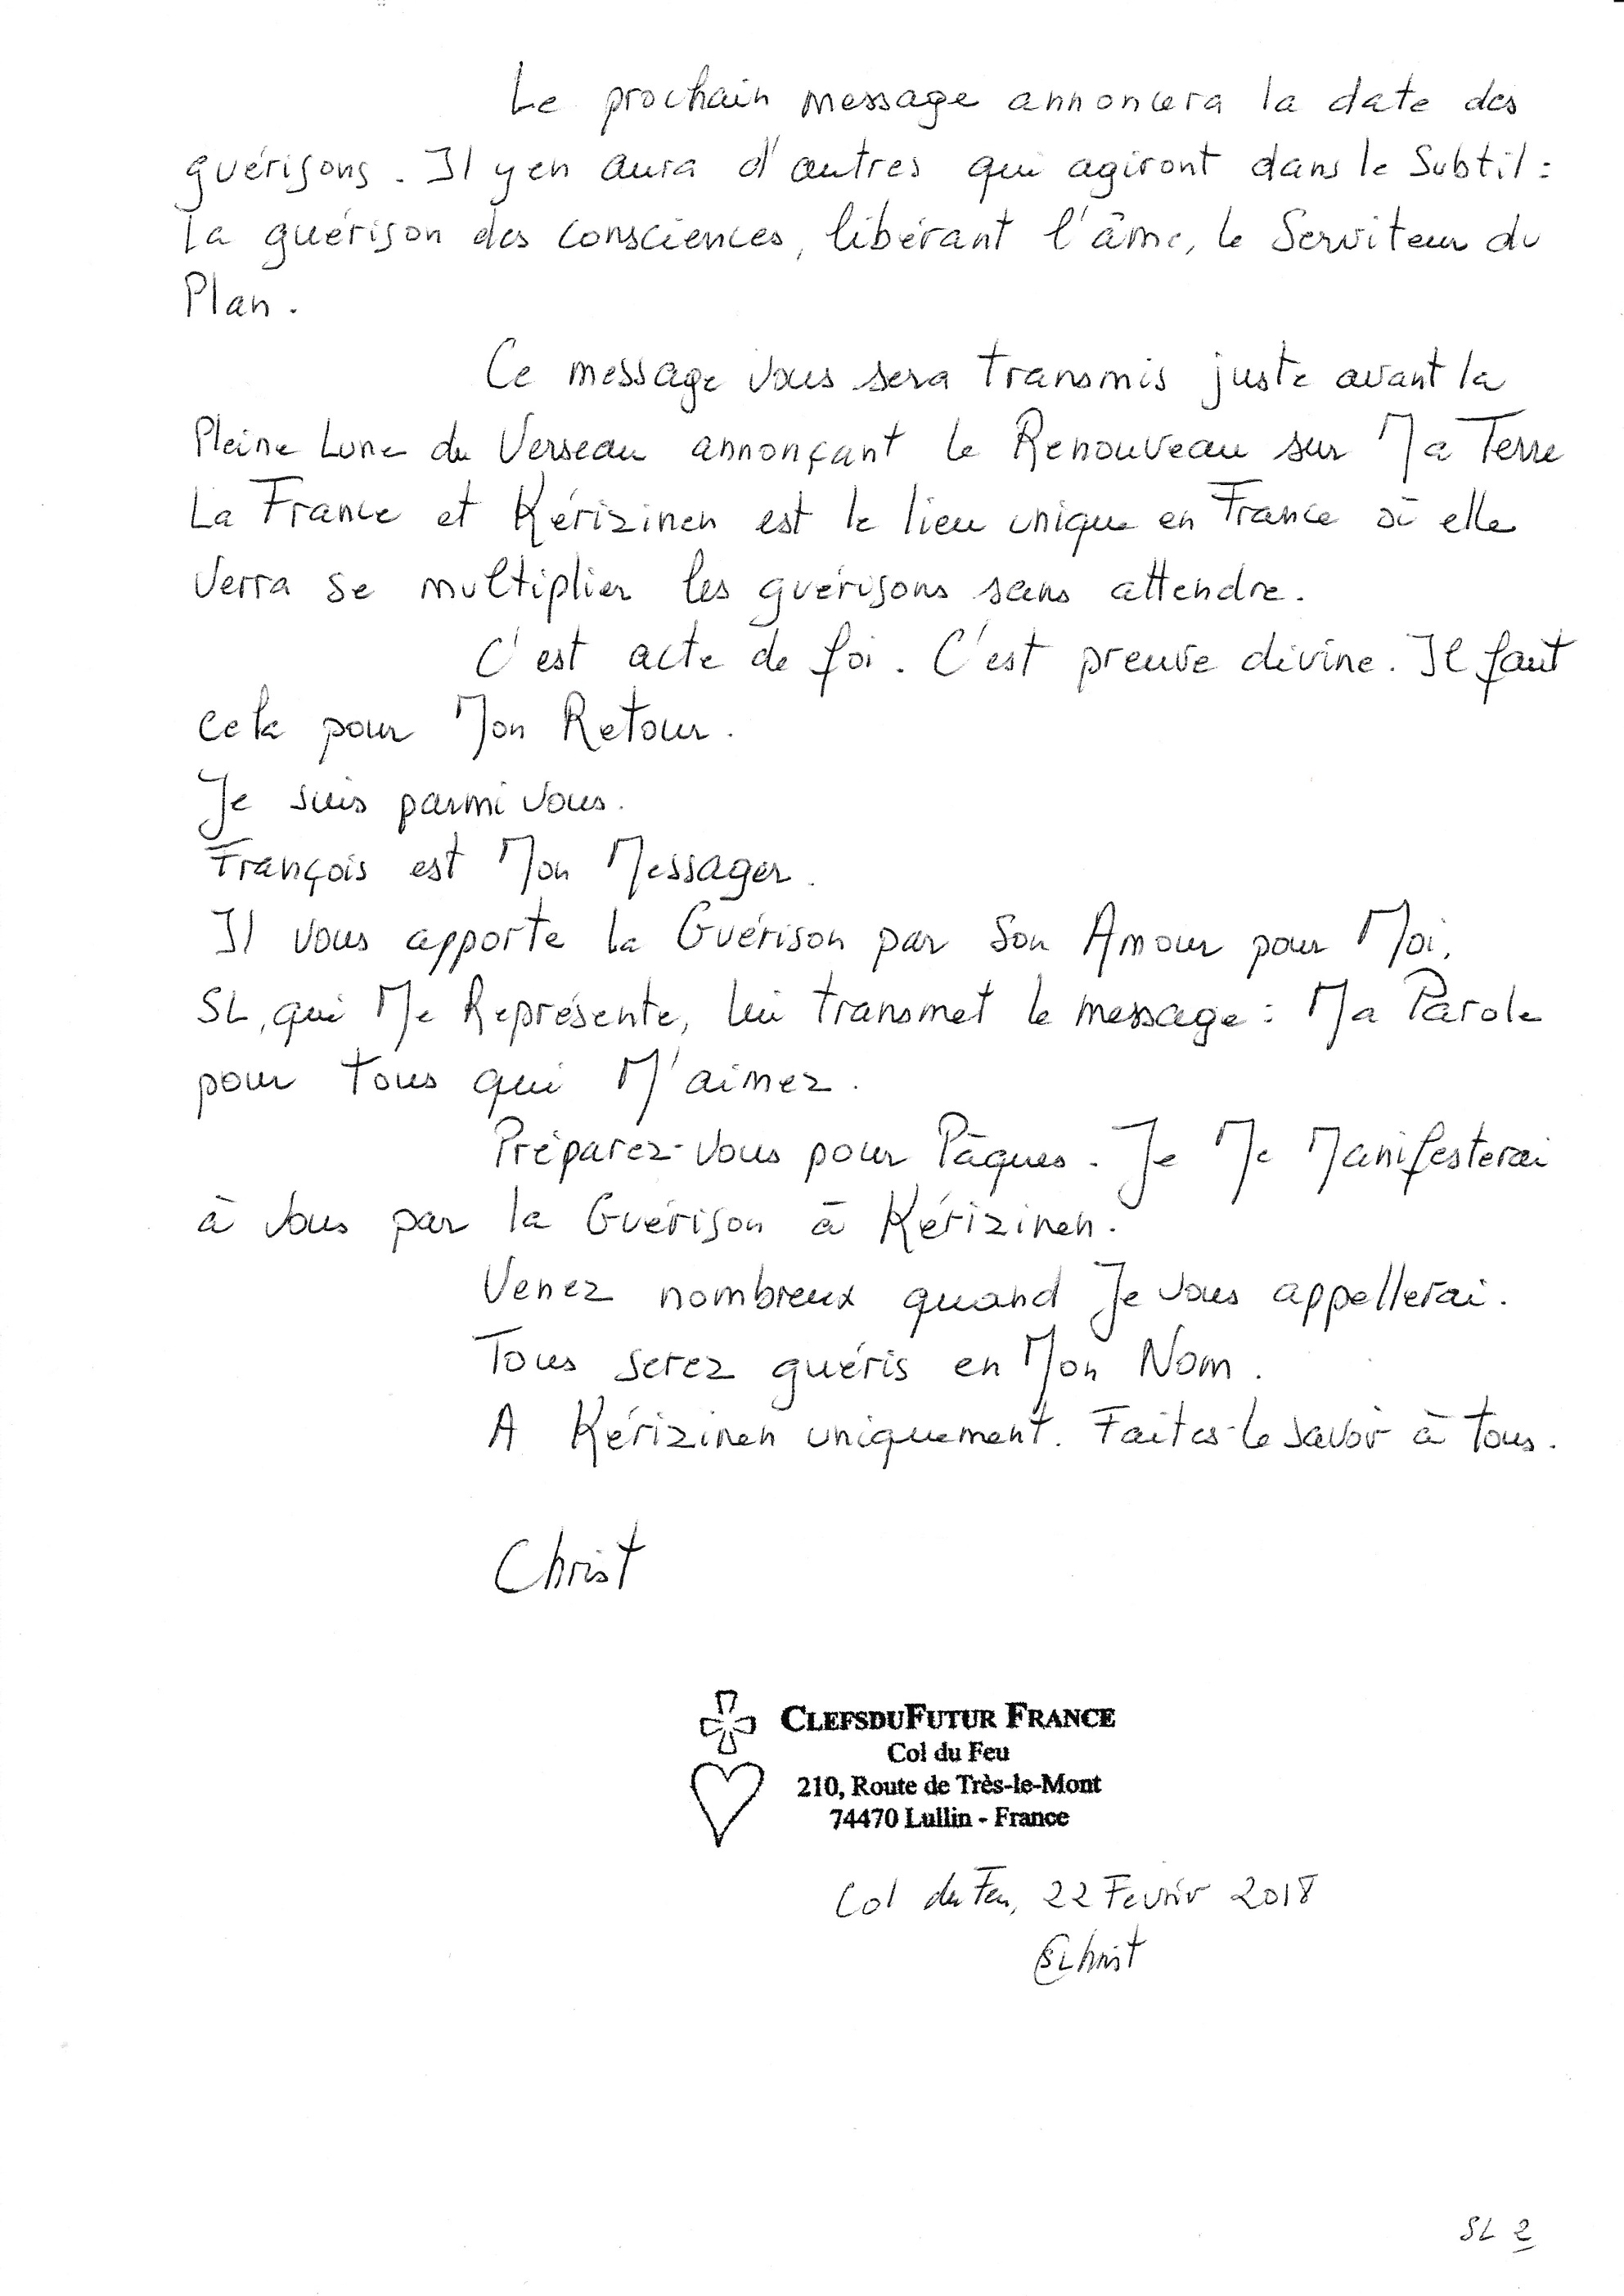 Le prochain message annoncera la date des
guérisons. Il y en aura d'autres qui agiront dans le Subtil :
la guérison des consciences, libérant l'âme, le Serviteur du
Plan.
Ce message vous sera transmis juste avant la
Pleine Lune du Verseau annonçant le Renouveau sur Ma Terre
La France et Kérizinen est le lieu unique en France où elle
verra se multiplier les guérisons sans attendre.
C'est acte de foi. C'est preuve divine. Il faut
cela pour Mon Retour.
Je suis parmi vous.
François est Mon Messager.
Il vous apporte la Guérison par Son Amour pour Moi.
SL, qui Me Représente, lui transmet le message : Ma Parole
pour tous qui M'aimez.
Préparez-vous pour Pâques. Je Me Manifesterai
à vous par la Guérison à Kérizinen.
Venez nombreux quand Je vous appellerai.
Tous serez guéris en Mon Nom.
A Kérizinen uniquement. Faites-le savoir à tous.
Christ
CLEFSDUFUTUR FRANCE
Col du Feu
210, Route de Très-le-Mont
74470 Lullin - France
Col du Feu, 22 Février 2018
SLChrist
SL 2